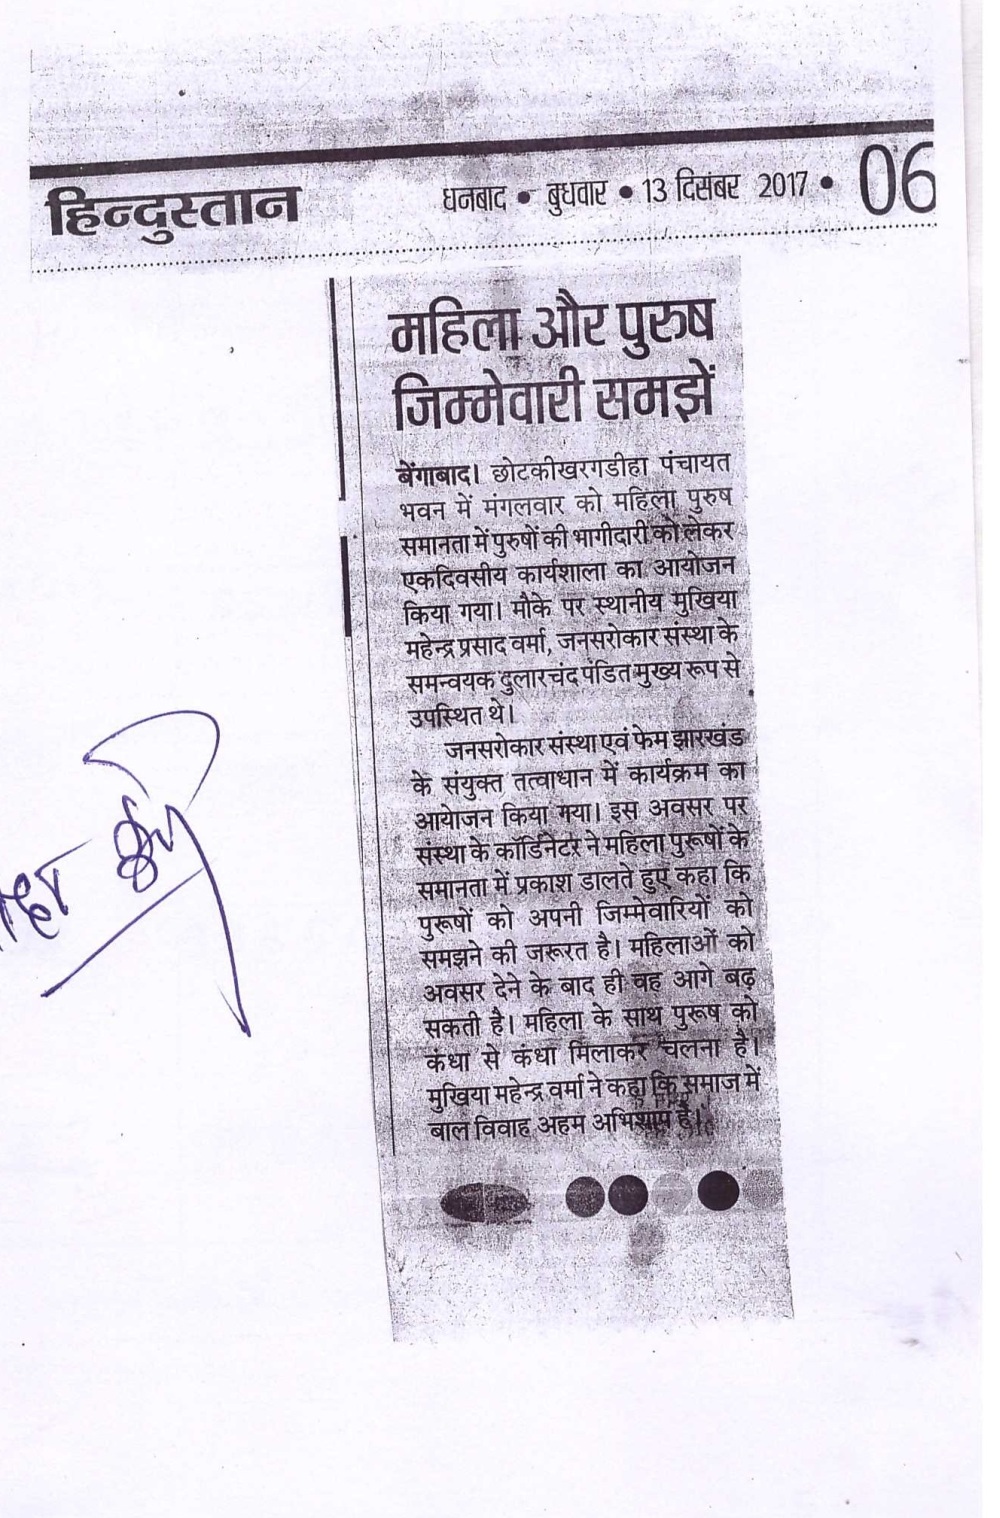 हिन्दुस्तान
धनबाद • बुधवार • 13 दिसंबर 2017 • 06
महिला और पुरुष
जिम्मेवारी समझें
बेंगाबाद। छोटकीखरगडीहा पंचायत
भवन में मंगलवार को महिला पुरुष
समानता में पुरुषों की भागीदारी को लेकर
एकदिवसीय कार्यशाला का आयोजन
किया गया। मौके पर स्थानीय मुखिया
महेन्द्र प्रसाद वर्मा, जनसरोकार संस्था के
समन्वयक दुलारचंद पंडित मुख्य रूप से
उपस्थित थे।
जनसरोकार संस्था एवं फेम झारखंड
के संयुक्त तत्वाधान में कार्यक्रम का
आयोजन किया गया। इस अवसर पर
संस्था के कॉर्डिनेटर ने महिला पुरूषों के
समानता में प्रकाश डालते हुए कहा कि
पुरूषों को अपनी जिम्मेवारियों को
समझने की जरूरत है। महिलाओं को
अवसर देने के बाद ही वह आगे बढ़
सकती है। महिला के साथ पुरूष को
कंधा से कंधा मिलाकर चलना है।
मुखिया महेन्द्र वर्मा ने कहा कि समाज में
बाल विवाह अहम अभिशाप है।